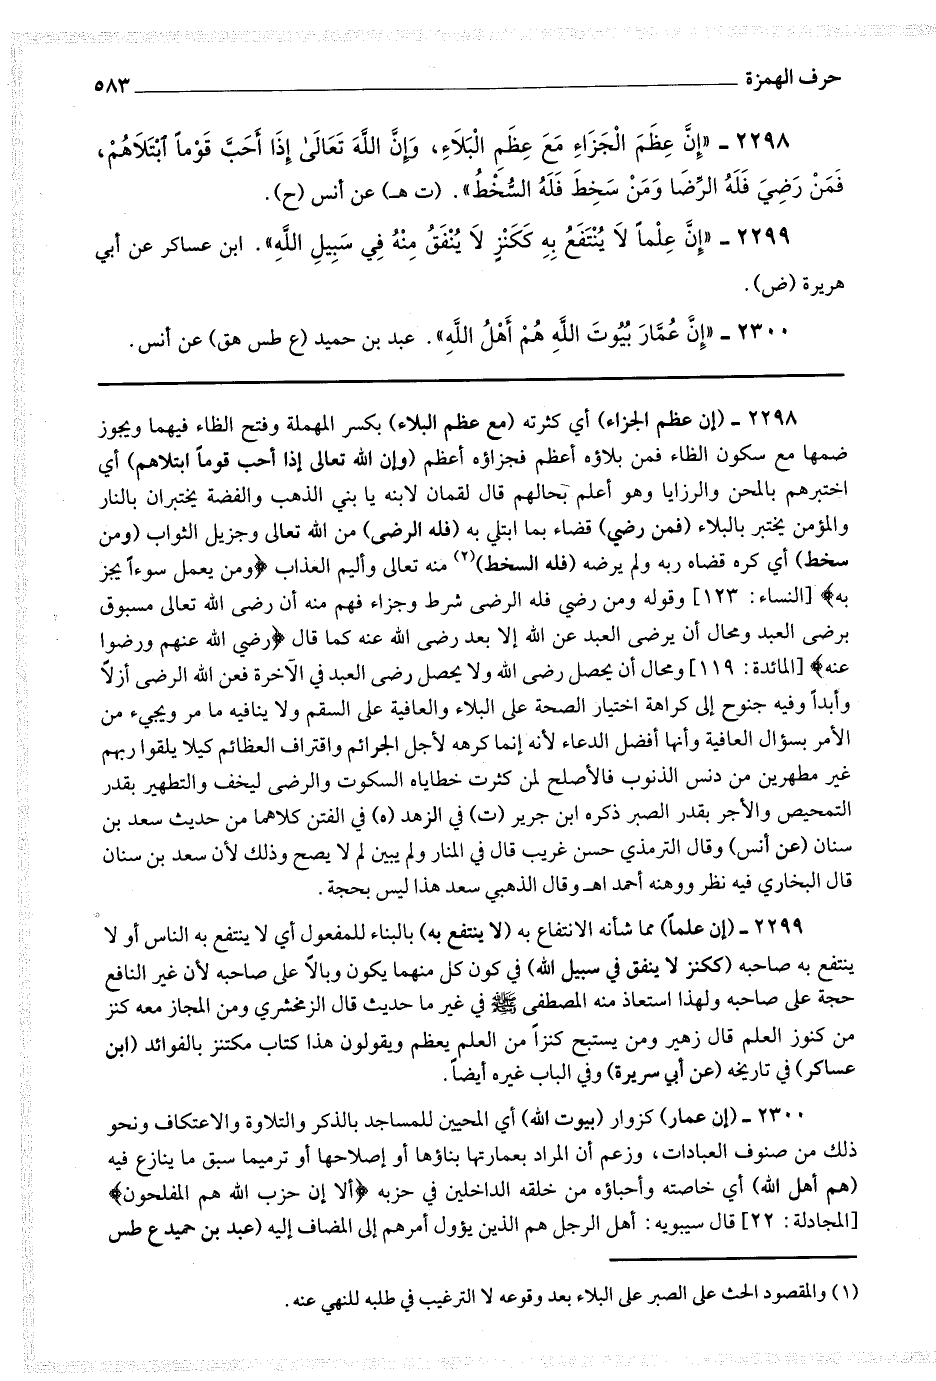 حرف الهمزة ٥٨٣
٢٢٩٨ ـ «إِنَّ عِظَمَ الْجَزَاءِ مَعَ عِظَمِ الْبَلَاءِ، وَإِنَّ اللَّهَ تَعَالَىٰ إِذَا أَحَبَّ قَوْماً ٱبْتَلَاهُمْ،
فَمَنْ رَضِيَ فَلَهُ الرِّضَا وَمَنْ سَخِطَ فَلَهُ السُّخْطُ». (ت هـ) عن أنس (ح).
٢٢٩٩ ـ «إِنَّ عِلْماً لَا يُنْتَفَعُ بِهِ كَكَنْزٍ لَا يُنْفَقُ مِنْهُ فِي سَبِيلِ اللَّهِ». ابن عساكر عن أبي
هريرة (ض).
٢٣٠٠ ـ «إِنَّ عُمَّارَ بُيُوتَ اللَّهِ هُمْ أَهْلُ اللَّهِ». عبد بن حميد (ع طس هق) عن أنس.
٢٢٩٨ ـ (إن عظم الجزاء) أي كثرته (مع عظم البلاء) بكسر المهملة وفتح الظاء فيهما ويجوز
ضمها مع سكون الظاء فمن بلاؤه أعظم فجزاؤه أعظم (وإن الله تعالى إذا أحب قوماً ابتلاهم) أي
اختبرهم بالمحن والرزايا وهو أعلم بحالهم قال لقمان لابنه يا بني الذهب والفضة يختبران بالنار
والمؤمن يختبر بالبلاء (فمن رضي) قضاء بما ابتلي به (فله الرضى) من الله تعالى وجزيل الثواب (ومن
سخط) أي كره قضاه ربه ولم يرضه (فله السخط)(٢) منه تعالى وأليم العذاب ﴿ومن يعمل سوءاً يجز
به﴾ [النساء: ١٢٣] وقوله ومن رضي فله الرضى شرط وجزاء فهم منه أن رضى الله تعالى مسبوق
برضى العبد ومحال أن يرضى العبد عن الله إلا بعد رضى الله عنه كما قال ﴿رضي الله عنهم ورضوا
عنه﴾ [المائدة: ١١٩] ومحال أن يحصل رضى الله ولا يحصل رضى العبد في الآخرة فعن الله الرضى أزلاً
وأبداً وفيه جنوح إلى كراهة اختيار الصحة على البلاء والعافية على السقم ولا ينافيه ما مر ويجيء من
الأمر بسؤال العافية وأنها أفضل الدعاء لأنه إنما كرهه لأجل الجرائم واقتراف العظائم كيلا يلقوا ربهم
غير مطهرين من دنس الذنوب فالأصلح لمن كثرت خطاياه السكوت والرضى ليخف والتطهير بقدر
التمحيص والأجر بقدر الصبر ذكره ابن جرير (ت) في الزهد (ه) في الفتن كلاهما من حديث سعد بن
سنان (عن أنس) وقال الترمذي حسن غريب قال في المنار ولم يبين لم لا يصح وذلك لأن سعد بن سنان
قال البخاري فيه نظر ووهنه أحمد اهـ وقال الذهبي سعد هذا ليس بحجة.
٢٢٩٩ ـ (إن علماً) مما شأنه الانتفاع به (لا ينتفع به) بالبناء للمفعول أي لا ينتفع به الناس أو لا
ينتفع به صاحبه (ككنز لا ينفق في سبيل الله) في كون كل منهما يكون وبالاً على صاحبه لأن غير النافع
حجة على صاحبه ولهذا استعاذ منه المصطفى ﷺ في غير ما حديث قال الزمخشري ومن المجاز معه كنز
من كنوز العلم قال زهير ومن يستبح كنزاً من العلم يعظم ويقولون هذا كتاب مكتنز بالفوائد (ابن
عساكر) في تاريخه (عن أبي سريرة) وفي الباب غيره أيضاً.
٢٣٠٠ ـ (إن عمار) كزوار (بيوت الله) أي المحيين للمساجد بالذكر والتلاوة والاعتكاف ونحو
ذلك من صنوف العبادات، وزعم أن المراد بعمارتها بناؤها أو إصلاحها أو ترميما سبق ما ينازع فيه
(هم أهل الله) أي خاصته وأحباؤه من خلقه الداخلين في حزبه ﴿ألا إن حزب الله هم المفلحون﴾
[المجادلة: ٢٢] قال سيبويه: أهل الرجل هم الذين يؤول أمرهم إلى المضاف إليه (عبد بن حميد ع طس
(١) والمقصود الحث على الصبر على البلاء بعد وقوعه لا الترغيب في طلبه للنهي عنه.